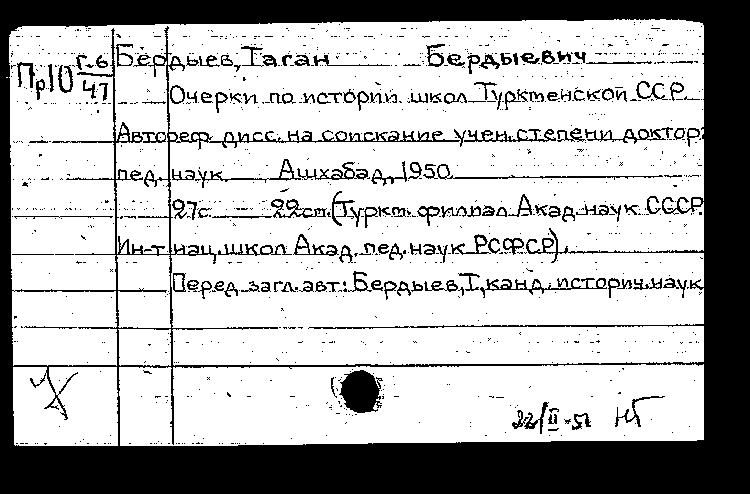 Пр10 г.6/47 Бердыев, Таган Бердыевич
Очерки по истории школ Туркменской ССР.
Автореф. дисс. на соискание учен. степени доктор
пед. наук Ашхабад, 1950.
27с. — 22см. (Туркм. филиал Акад. наук СССР.
Ин-т нац. школ Акад. пед. наук РСФСР).
Перед загл. авт: Бердыев, Т, канд. историч. наук
22/II-51 НГ